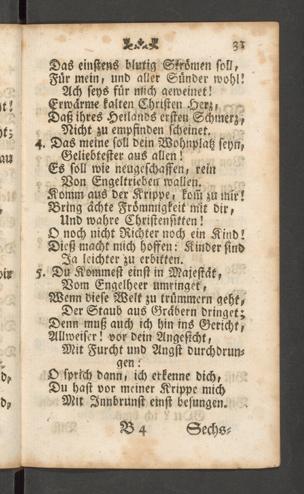 31
Das einstens blutig Strömen soll,
Für mein, und aller Sünder wohl!
Ach seys für mich geweinet!
Erwärme kalten Christen Herz,
Daß ihres Heilands ersten Schmerz,
Nicht zu empfinden scheinet.
4. Das meine soll dein Wohnplatz seyn,
Geliebtester aus allen!
Es soll wie neugeschaffen, rein
Von Engeltrieben wallen.
Komm aus der Krippe, kom̃ zu mir!
Bring ächte Frömmigkeit mit dir,
Und wahre Christensitten!
O noch nicht Richter noch ein Kind!
Dieß macht mich hoffen: Kinder sind
Ja leichter zu erbitten.
5. Du Kommest einst in Majestät,
Vom Engelheer umringet,
Wenn diese Welt zu trümmern geht,
Der Staub aus Gräbern dringet;
Denn muß auch ich hin ins Gericht,
Allweiser! vor dein Angesicht,
Mit Furcht und Angst durchdrun-
gen:
O sprich dann, ich erkenne dich,
Du hast vor meiner Krippe mich
Mit Innbrunst einst besungen.
B 4 Sechs-